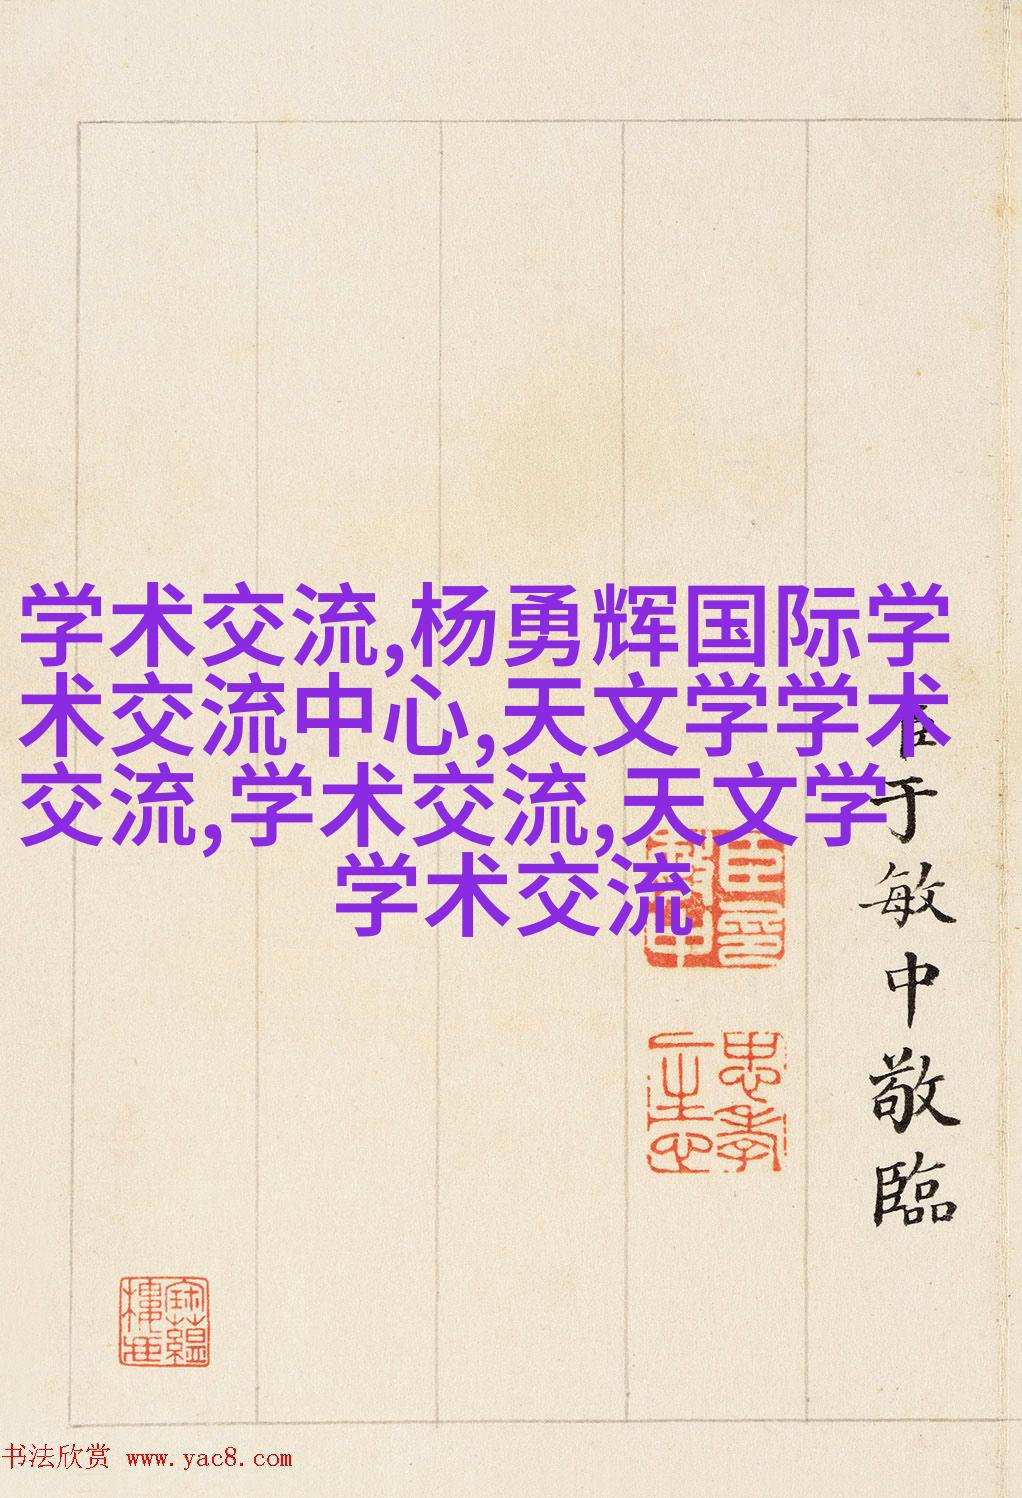 学术交流,杨勇辉国际学
术交流中心,天文学学术
交流,学术交流,天文学
学术交流
臣于敏中敬臨
忠孝
書法欣赏 www.yac8.com